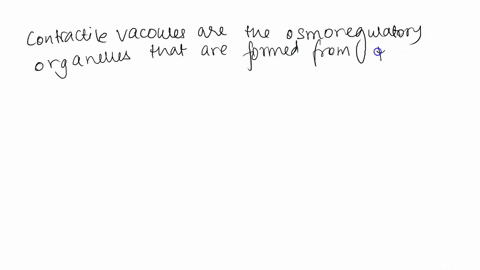 Contractile vacoules are the osmoregulatory
organelles that are formed from (